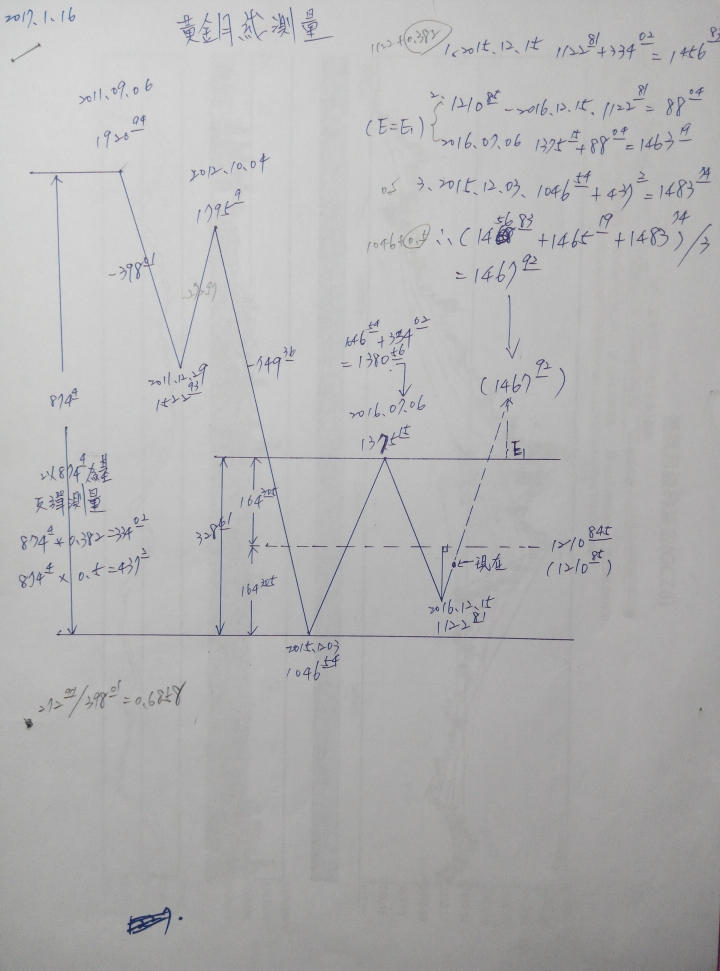 2017.1.16
黃金月線測量
1122+0.382
1、2015.12.15 1122.81+334.02=1456.83
2011.09.06
1920.94
(E=E1)
2、1210.85-2016.12.15、1122.81=88.04
2016.07.06 1375.15+88.04=1463.19
2012.10.04
1795.9
0.5 3、2015.12.03、1046.54+437.2=1483.74
1046+0.5
∴(1456.83+1465.19+1483.74)/3
=1467.92
-398.01
1046.54+334.02
=1380.56
-749.36
2011.12.29
1522.93
(1467.92)
874.4
2016.07.06
1375.15
E1
以874.4為基
反彈測量
164.305
328.61
874.4*0.382=334.02
874.4*0.5=437.2
1210.845
(1210.85)
←現在
164.305
2016.12.15
1122.81
2015.12.03
1046.54
272.97/398.01=0.6858